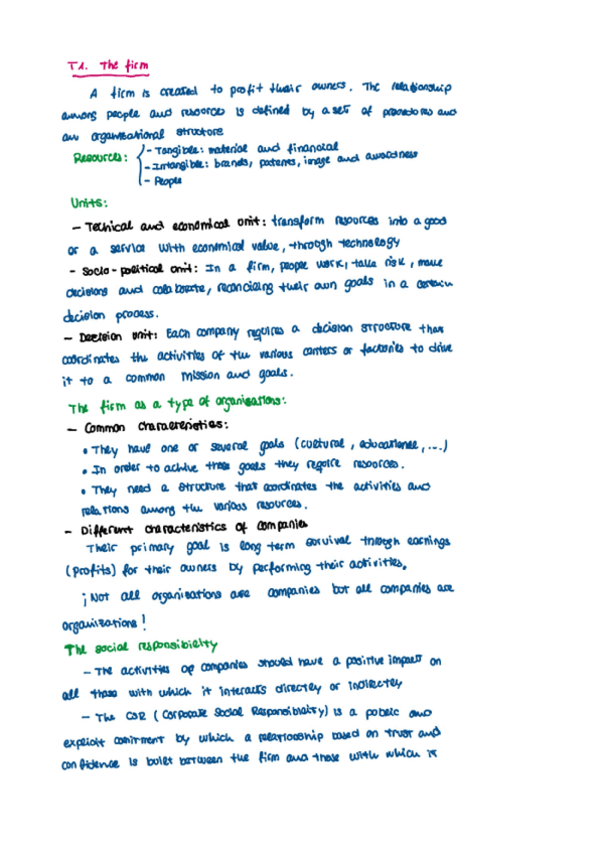 T1. The firm
A firm is created to profit their owners. The relationship
among people and resources is defined by a set of procedures and
an organisational structure
Resources: - Tangible: material and financial
- Intangible: brands, patents, image and awardness
- People
Units:
- Techical and economical unit: transform resources into a good
or a service with economical value, through technology
- Socio-political unit: In a firm, people work, take risk, make
decisions and colaborate, reconciling their own goals in a certain
decision process.
- Decision unit: Each company requires a decision structure that
coordinates the activities of the various centers or factories to drive
it to a common mission and goals.
The firm as a type of organisations:
- Common characteristics:
• They have one or several goals (cultural, educational, ....)
• In order to achive these goals they require resources.
• They need a structure that coordinates the activities and
relations among the various resources.
- Different characteristics of companies
Their primary goal is long term survival through earnings
(profits) for their owners by performing their activities.
¡Not all organisations are companies but all companies are
organizations!
The social responsibility
- The activities of companies should have a positive impact on
all those with which it interacts directly or indirectly
- The CSR (Corporate Social Responsibility) is a public and
explicit comitment by which a relationship based on trust and
confidence is built between the firm and those with which it